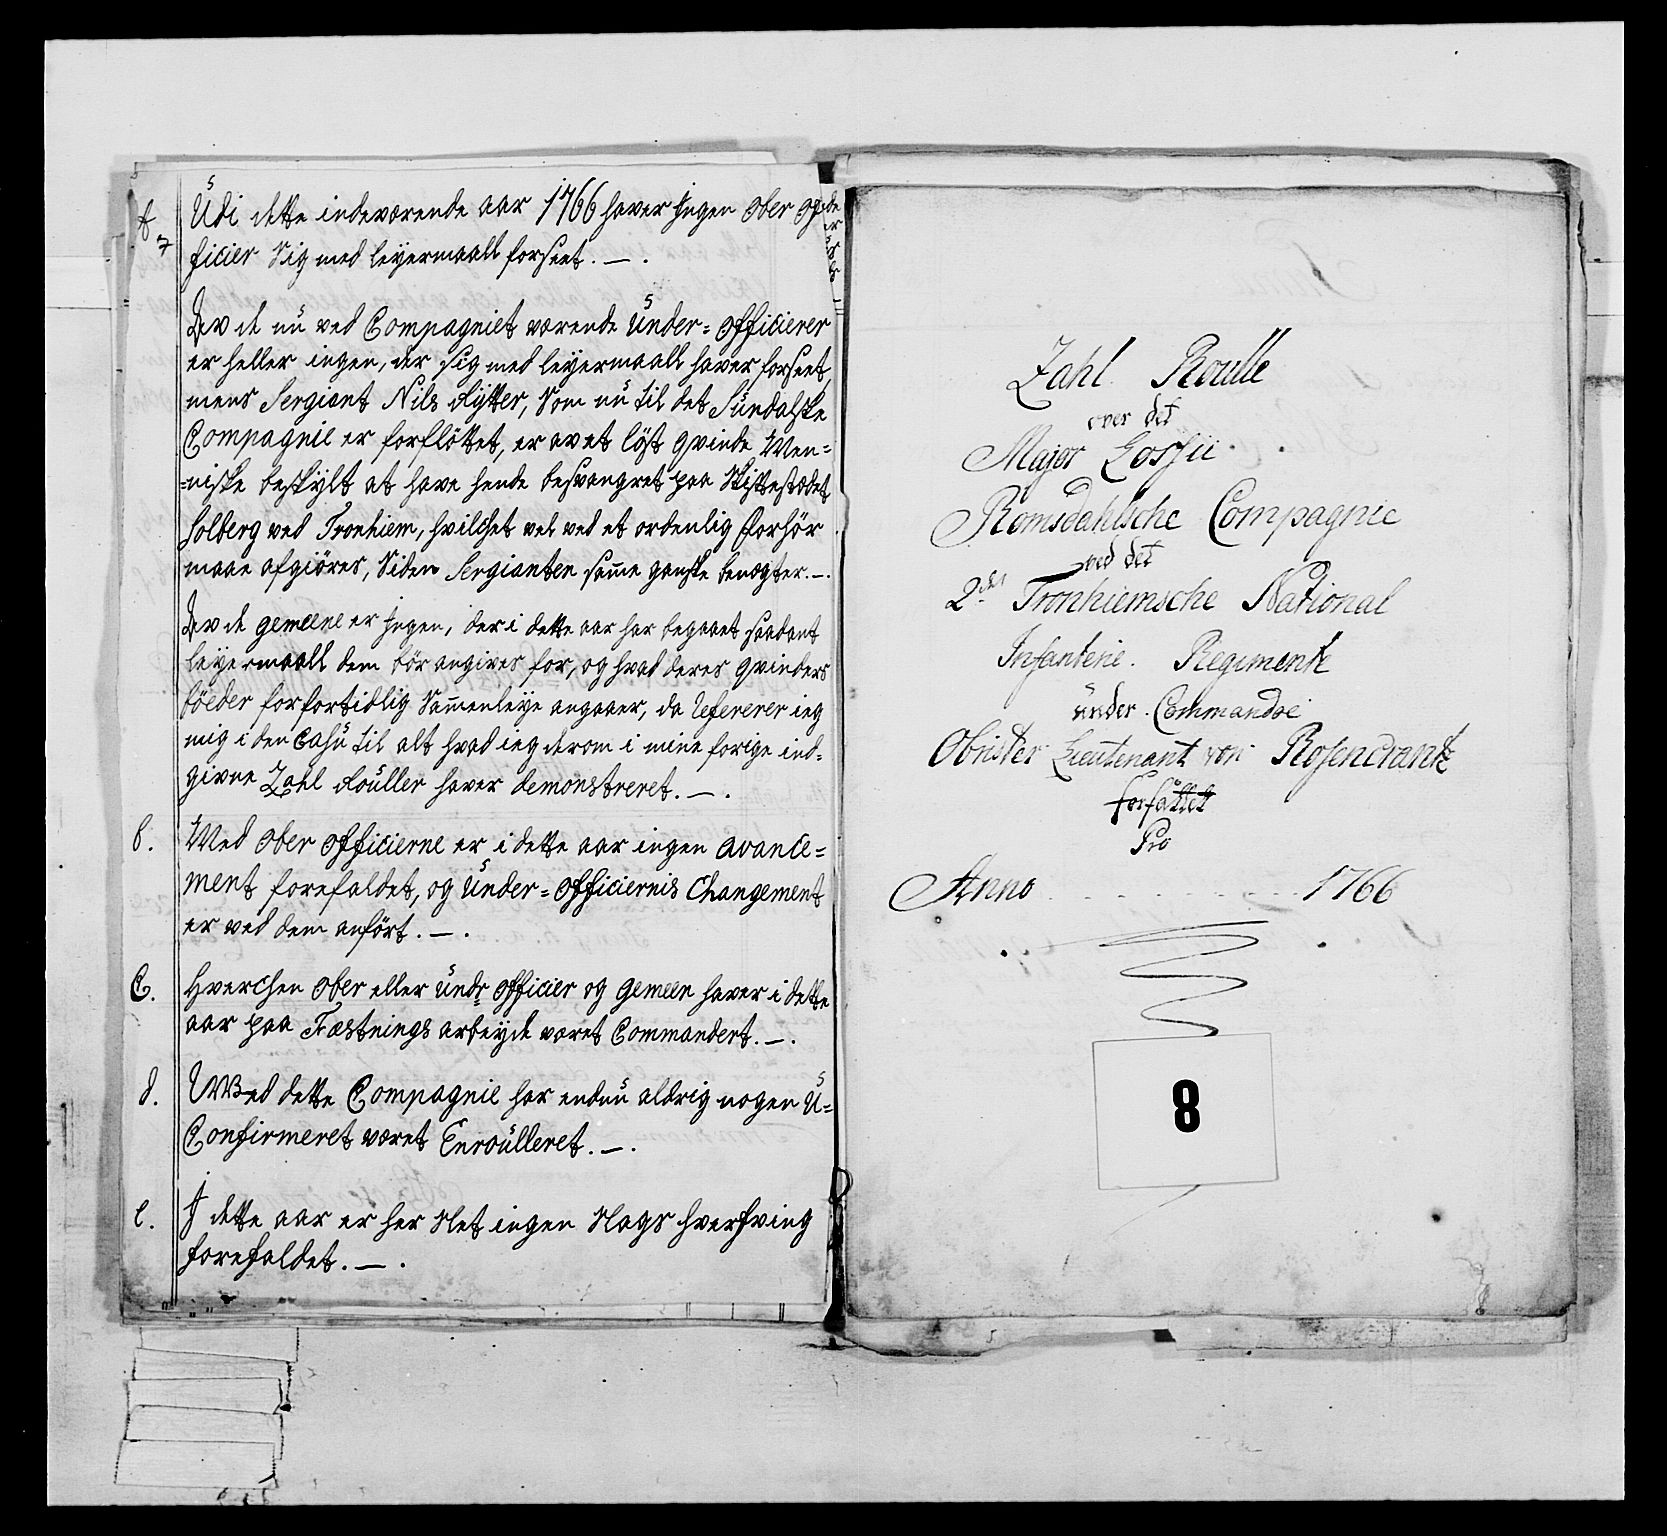 A
Udi dette indeværende aar 1766 haver Ingen Ober of-
ficier Sig med leyermaall forseet. —.
Av de nu ved Compagniet værende Under=Officierer
er heller ingen, der sig med leyermaall haver forseet,
mens Sergiant Nils Rytter, Som nu til det Sundalske
Compagnie er forflöttet, er av et löst qvinde Men=
=niske beskylt at have hende besvangret paa Skittestædet
Solberg ved Tronhiem, hvilchet vel ved et ordenlig forhör
maae afgiöres, Siden Sergianten same ganske benægter. —.
Av de gemeene er Ingen, der i dette aar har begaaet saadant
leyermaall dem bör angives for, og hvad deres qvinders
böeder for fortidlig Samenleye angaaer, da Refererer ieg
mig i den Casu til alt hvad ieg derom i mine forige ind=
givne Zahl Roüller haver demonstreret. —.
b.
Med Ober Officierne er i dette aar ingen avance=
ment forefaldet, og Under=Officiernis Changement
er ved dem anfört. —.
C.
Hverchen Ober eller Undr Officier og gemeen haver i dette
aar paa Fæstnings arbeyde været Commandert. —.
d.
Med dette Compagnie har endnu aldrig nogen U=
Confirmeret været Enroulleret. —.
e.
I dette aar er her Slet ingen Slags hverfving
forefaldet. —.
Zahl Roulle
over det
Major Lossii
Romsdahlsche Compagnie
ved det
2det Tronhiemsche National
Infanterie Regimente
under Commando
Obrister Lieutenant von Rosencrantz
forfattet
Pro
Anno 1766
8